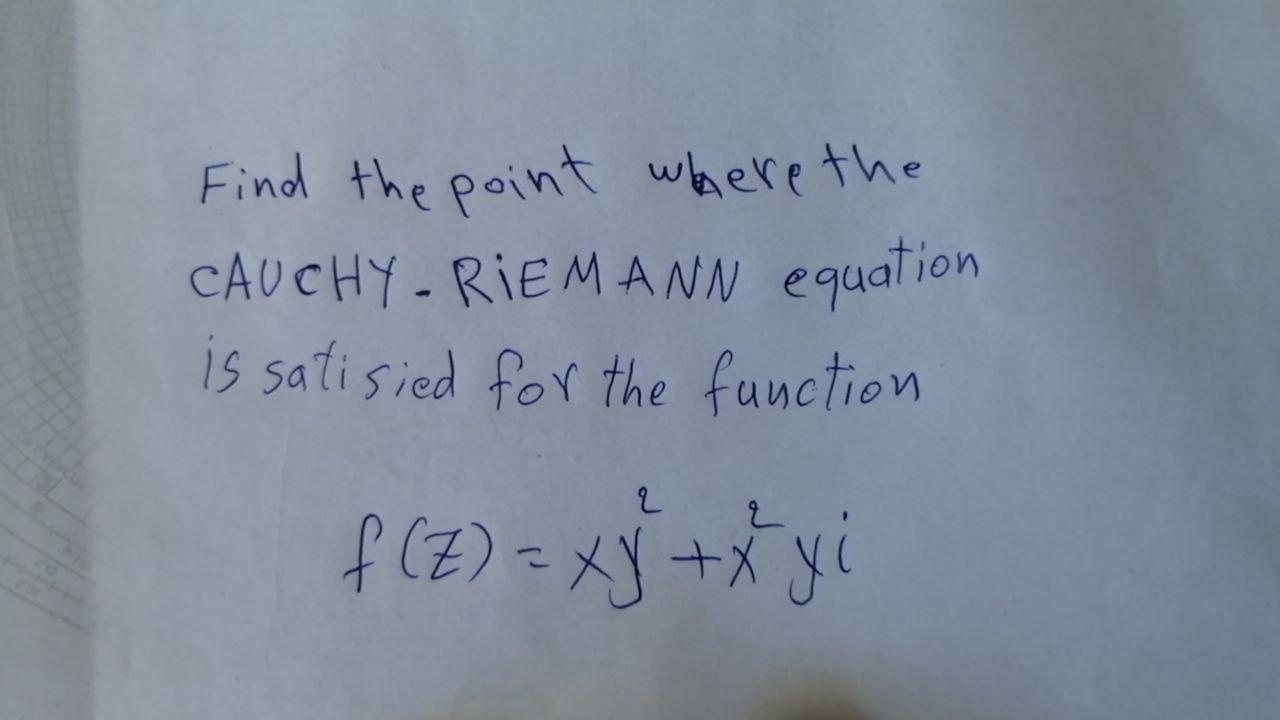 Find the point where the
CAUCHY-RiEMANN equation
is satisied for the function
f(Z) = xy² + x² yi